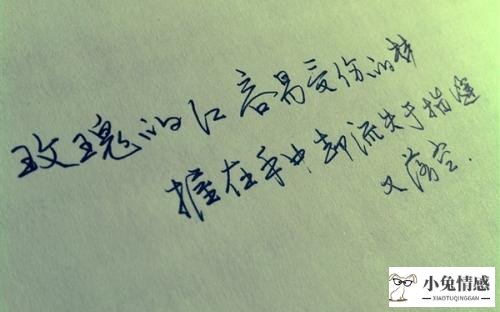 玫瑰的红 容易受伤的梦
握在手中却流失于指缝
又落空.
小兔情感
XIAOTUQINGGAN